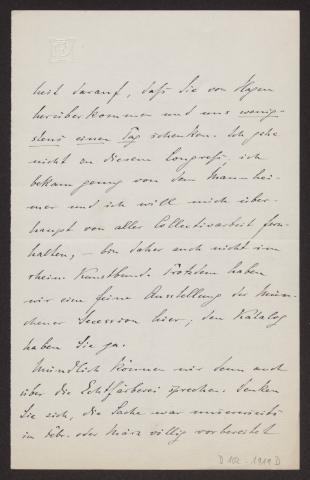 heit darauf, daß Sie von Hagen
herüberkommen und uns wenig-
stens einen Tag schenken. Ich gehe
nicht zu diesem Congreß, ich
bekam genug von dem Mannhei-
mer und ich will mich über-
haupt von aller Collectivarbeit fern-
halten, – bin daher auch nicht im
rhein. Kunstbund. Trotzdem haben
wir eine feine Ausstellung der Mün-
chener Secession hier; den Katalog
haben Sie ja.
Mündlich können wir dann auch
über die Echtfärberei sprechen. Denken
Sie sich, die Sache war unsererseits
im Febr. oder März völlig vorbereitet
D 102 - 1919 D